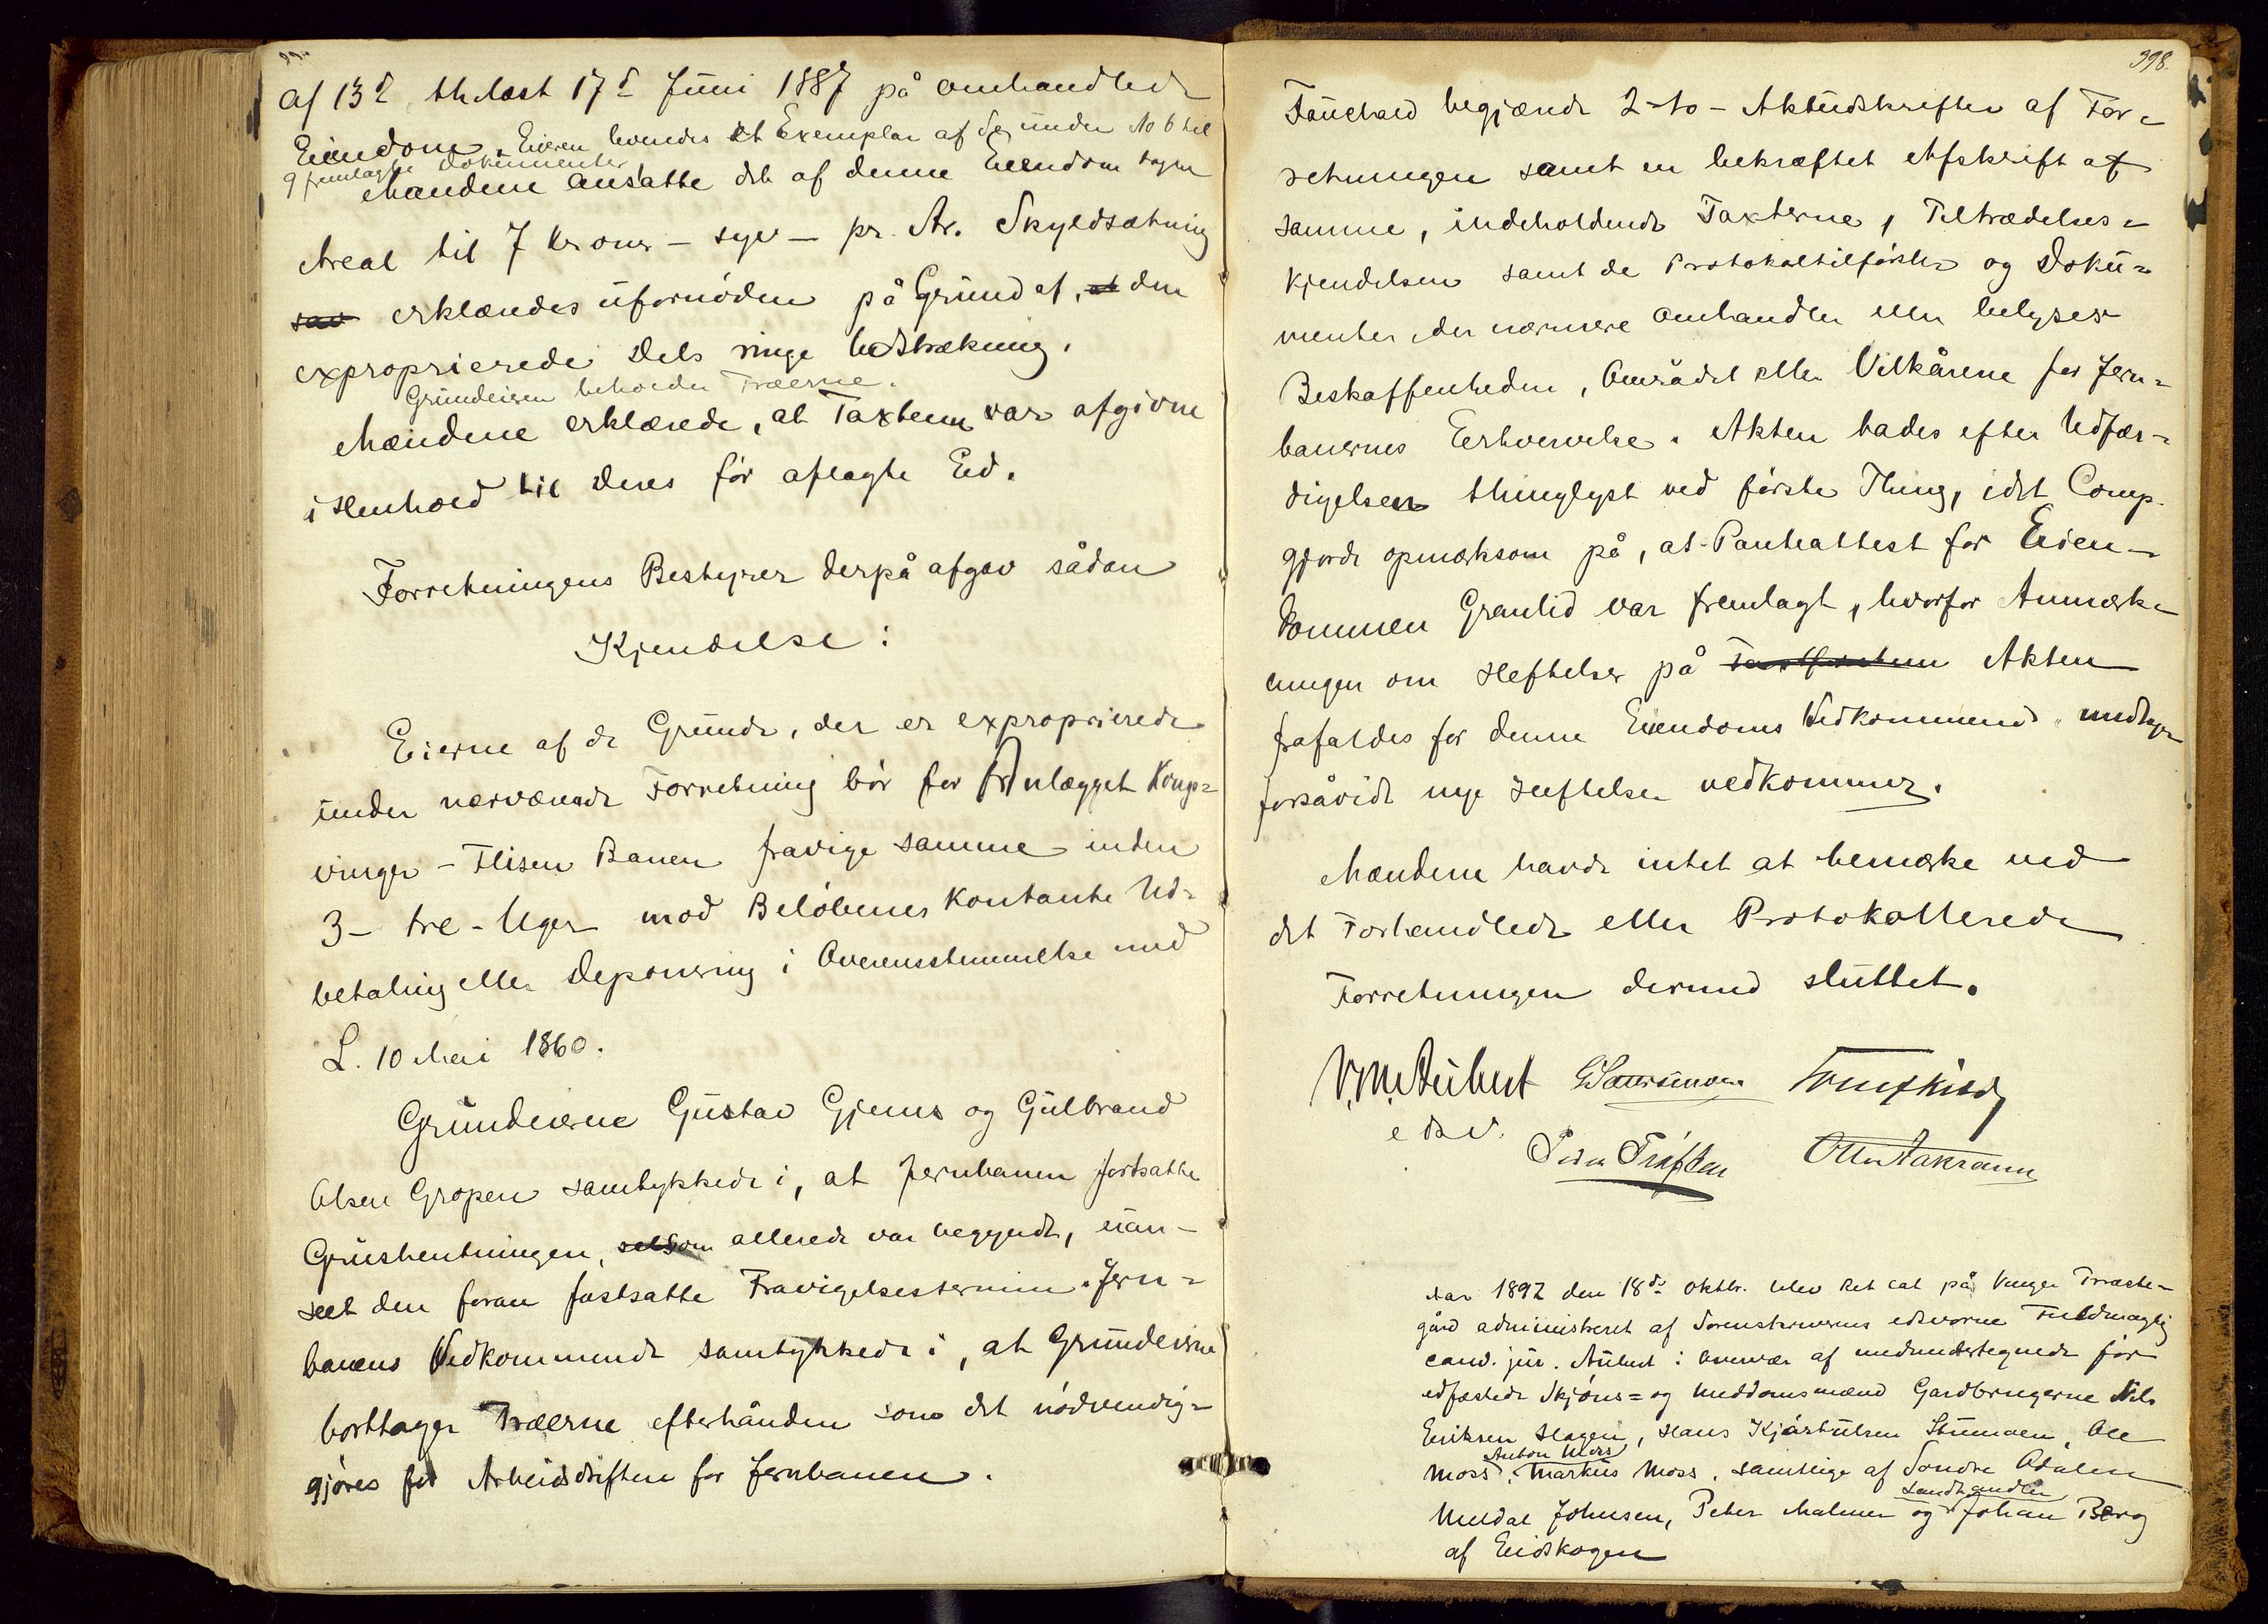 af 13d, thelæst 17d Juni 1887 på omhandlede
Eiendom. Eieren hvendes et Exemplar af de under No 6 til
9 fremlagte Dokumenter
Mændene ansatte det af denne Eiendom tagne
Areal til 7 kroner - syv - pr. Ar. Skyldsætning
erklæredes ufornöden på Grund af, at den
exproprierede Dels ringe Udstrækning.
Grundeieren beholder Træerne.
Mændene erklærede, at Taxterne var afgivne
i Henhold til deres för aflagte Ed.
Forretningens Bestyrer derpå afgav sådan
Kjendelse:
Eierne af de Grunde, der er exproprierede
under nærværende Forretning bör for Anlægget Kongs=
vinger - Flisen Banen fravige samme inden
3 - tre - Uger mod Belöbenes kontante Ud=
betaling eller Deponering i Overensstemmelse med
L. 10 Mai 1860.
Grundeierne Gustav Gjems og Gulbrand
Olsen Gropen samtykkede i, at Jernbanen fortsatte
Grushentningen, som allerede var begyndt, uan-
seet den foran fastsatte Fravigelsestermin. Jern=
banens Vedkommende samtykkede i, at Grundeierne
borttager Træerne efterhånden som det nödvendig=
gjöres for Arbeidsdriften for Jernbanen.
398.
Fauchald begjærede 2 - to - Aktudskrifter af For=
retningen samt en bekræftet Afskrift af
samme, indeholdende Taxterne, Tiltrædelses=
kjendelsen samt de Protokoltilförsler og Doku=
menter der nærmere omhandler eller belyser
Beskaffenheden, Området eller Vilkårene for Jern=
banernes Erhvervelse. Akten bades efter Udfær=
digelsen thinglyst ved förste Thing, idet Comp.
gjorde opmærksom på, at Panteattest for Eien-
dommen Granlid var fremlagt, hvorfor Anmærk=
ningen om Heftelser på Akten
frafaldes for denne Eiendoms Vedkommende undtagen
forsåvidt nye Heftelser vedkommer.
Mændene havde intet at bemærke ved
det Forhandlede eller Protokollerede
Forretningen dermed sluttet.
V.M. Aubert
e dsv.
Peder Otto Aakrann
Aar 1892 den 18de Oktbr. blev Ret sat på Vinger Præste=
gård administreret af Sorenskriverens edsvorne Fuldmægtig
cand. jur. Aubert i Overvær af medundertegnede för
edfæstede Skjöns= og Meddomsmænd Gardbrugerne Nils
Eriksen Hagen, Hans Kjöstulsen Stummoen, Ole
Anton Moss
Moss, Markus Moss, samtlige af Söndre Odalen
Landhandler
Meldal Johnsen, Peter Malmer og Johan Berg
af Eidskogen